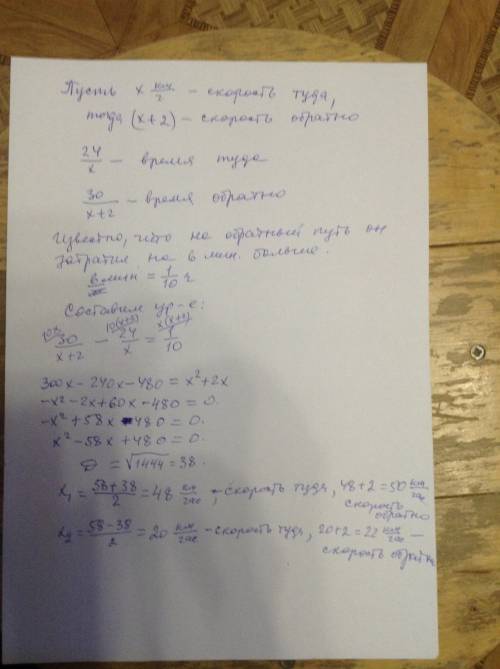 Пусть x км/г – скорость туда,
тогда (x+2) – скорость обратно
24/x – время туда
30/x+2 – время обратно
Известно, что на обратный путь он
затратил на 6 мин. больше.
6 мин = 1/10 ч
Составим ур-е:
10x 10(x+2) x(x+2)
30/x+2 − 24/x = 1/10
300x − 240x − 480 = x² + 2x
−x² − 2x + 60x − 480 = 0.
−x² + 58x − 480 = 0.
x² − 58x + 480 = 0.
D = √1444 = 38.
x₁ = 58+38/2 = 48 км/час – скорость туда, 48+2 = 50 км/час
скорость обратно
x₂ = 58−38/2 = 20 км/час – скорость туда, 20+2 = 22 км/час –
скорость обратно